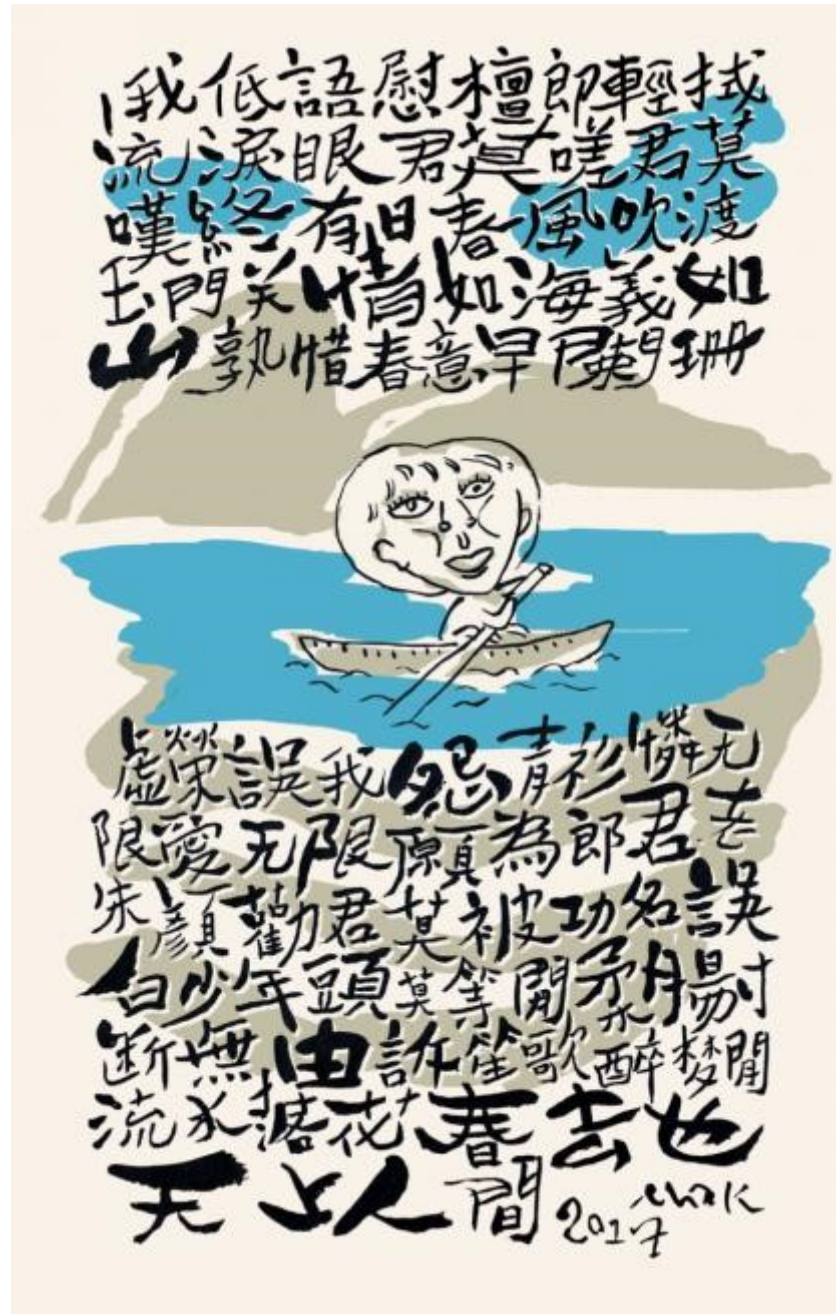 我低語慰檀郎輕拭
流淚眼君莫嗟君莫
嘆終有日春風吹渡
玉門关情如海義如
山孰惜春意早闌珊
虛榮誤我怨青衫憐无
限愛无限願為郎君老
朱顏勸君莫被功名誤
白少年頭莫等閒柔腸寸
斷無由訴笙歌醉梦間
流水落花春去也
天上人間 2017